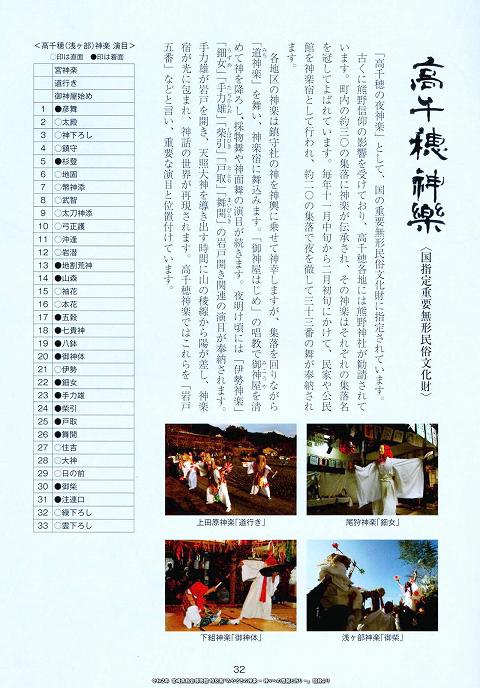 高千穂神楽
〈国指定重要無形民俗文化財〉
「高千穂の夜神楽」として、国の重要無形民俗文化財に指定されています。
古くに熊野信仰の影響を受けており、高千穂各地には熊野神社が勧請されて
います。町内の約三〇の集落に神楽が伝承され、その神楽はそれぞれの集落名
を冠してよばれています。毎年十一月中旬から二月初旬にかけて、民家や公民
館を神楽宿として行われ、約二〇の集落で夜を徹して三十三番の舞が奉納され
ます。
各地区の神楽は鎮守社の神を神輿に乗せて神幸しますが、集落を回りながら
「道神楽」を舞い、神楽宿に舞込みます。「御神屋はじめ」の唱教で御神屋を清
めて神を降ろし、採物舞や神面舞の演目が続きます。夜明け頃には「伊勢神楽」
「鈿女」「手力雄」「柴引」「戸取」「舞開」の岩戸開き関連の演目が奉納されます。
手力雄が岩戸を開き、天照大神を導き出す時間に山の稜線から陽が差し、神楽
宿が光に包まれ、神話の世界が再現されます。高千穂神楽ではこれらを「岩戸
五番」などと言い、重要な演目と位置付けています。
<高千穂(浅ヶ部)神楽 演目>
○印は直面 ●印は着面
宮神楽
道行き
御神屋始め
1 ●彦舞
2 ○太殿
3 ○神下ろし
4 ○鎮守
5 ●杉登
6 ○地固
7 ○幣神添
8 ○武智
9 ○太刀神添
10 ○弓正護
11 ○沖逢
12 ○岩潜
13 ●地割荒神
14 ●山森
15 ○袖花
16 ○本花
17 ●五穀
18 ●七貴神
19 ●八鉢
20 ●御神体
21 ○伊勢
22 ●鈿女
23 ●手力雄
24 ●柴引
25 ●戸取
26 ●舞開
27 ○住吉
28 ○大神
29 ○日の前
30 ●御柴
31 ●注連口
32 ○繰下ろし
33 ○雲下ろし
上田原神楽「道行き」
尾狩神楽「鈿女」
下組神楽「御神体」
浅ヶ部神楽「御柴」
32